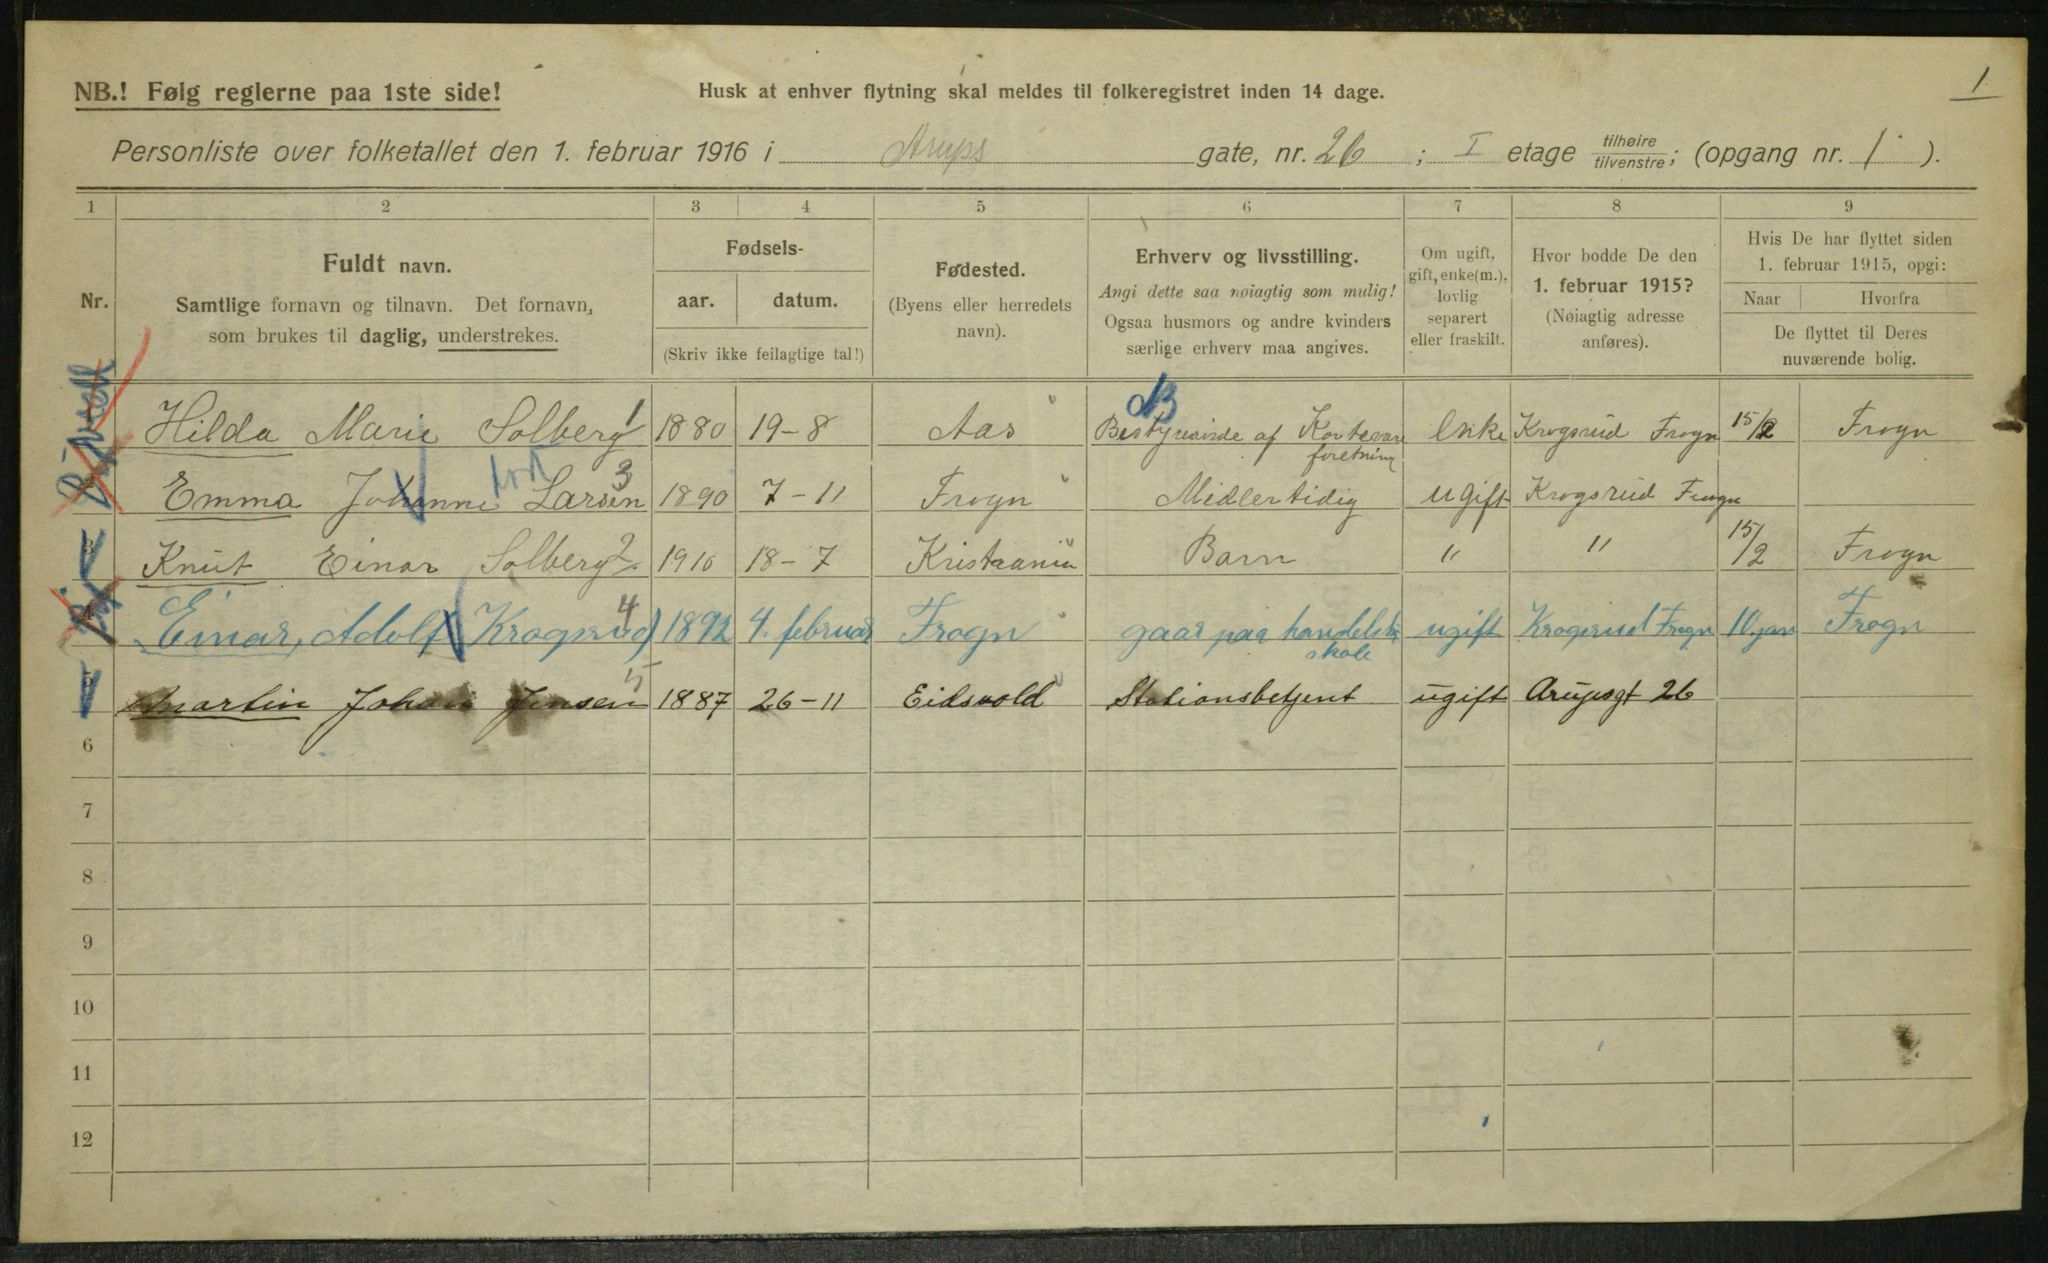 NB.! Følg reglerne paa 1ste side!
Husk at enhver flytning skal meldes til folkeregistret inden 14 dage.
1
Personliste over folketallet den 1. februar 1916 i Arups gate, nr. 26 ; I etage tilhøire tilvenstre ; (opgang nr. 1 ).
1 2 3 4 5 6 7 8 9
Nr.
Fuldt navn.
Samtlige fornavn og tilnavn. Det fornavn,
som brukes til daglig, understrekes.
Fødsels-
aar. datum.
(Skriv ikke feilagtige tal!)
Fødested.
(Byens eller herredets
navn).
Erhverv og livsstilling.
Angi dette saa nøiagtig som mulig!
Ogsaa husmors og andre kvinders
særlige erhverv maa angives.
Om ugift,
gift, enke(m.),
lovlig
separert
eller fraskilt.
Hvor bodde De den
1. februar 1915?
(Nøiagtig adresse
anføres).
Hvis De har flyttet siden
1. februar 1915, opgi:
Naar Hvorfra
De flyttet til Deres
nuværende bolig.
Hilda Marie Solberg 1 1880 19-8 Aas Bestyrerinde af Kortevare Enke Krogsrud Frogn 15/2 Frogn
foretning
Emma Johanne Larsen 3 1890 7-11 Frogn Midlertidig ugift Krogsrud Frogn
3 Knut Einar Solberg 2 1910 18-7 Kristiania Barn " " 15/2 Frogn
4 Einar, Adolf Krogsrud 4 1892 4. februar Frogn gaar paa handels ugift Krogsrud Frogn 10 jan Frogn
skole
5 Martin Johan Jensen 5 1887 26-11 Eidsvold Stationsbetjent ugift Arupsgt 26
6
7
8
9
10
11
12